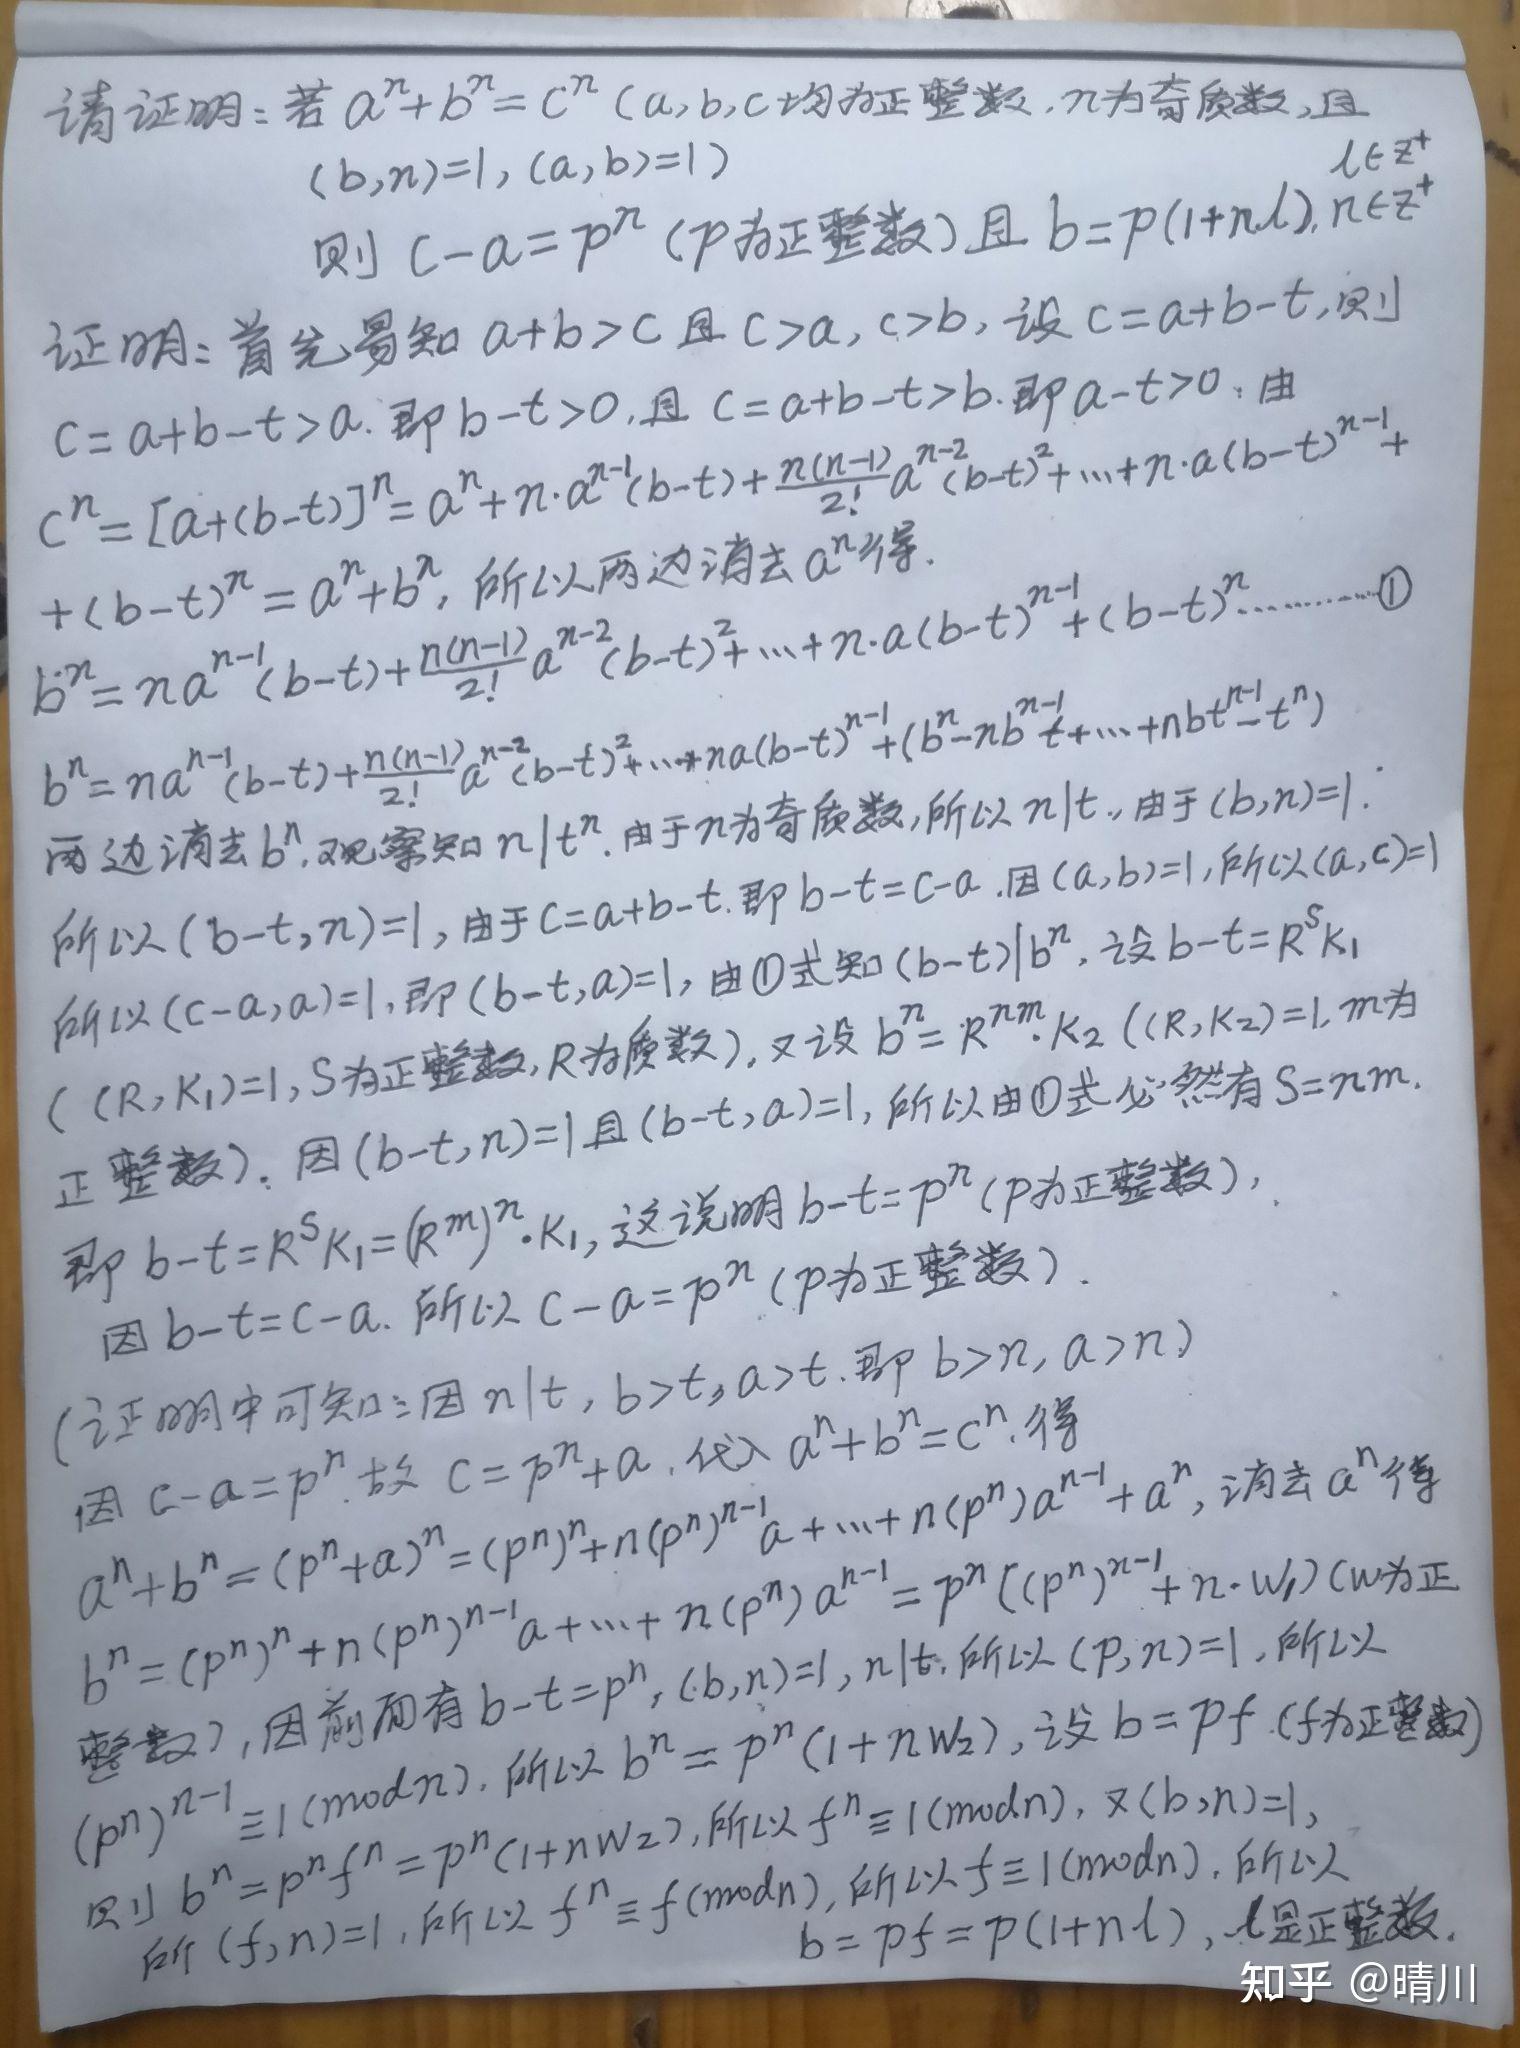 请证明：若 aⁿ+bⁿ=cⁿ (a,b,c均为正整数，n为奇质数，且
(b,n)=1, (a,b)=1)
l∈Z⁺
则 c-a=pⁿ (p为正整数) 且 b=p(1+nl), n∈Z⁺
证明：首先易知 a+b>c 且 c>a, c>b, 设 c=a+b-t, 则
c=a+b-t>a. 即 b-t>0, 且 c=a+b-t>b. 即 a-t>0. 由
cⁿ=[a+(b-t)]ⁿ=aⁿ+n·aⁿ⁻¹(b-t)+n(n-1)/2! aⁿ⁻²(b-t)²+…+n·a(b-t)ⁿ⁻¹+
+(b-t)ⁿ=aⁿ+bⁿ, 所以两边消去aⁿ得.
bⁿ=naⁿ⁻¹(b-t)+n(n-1)/2! aⁿ⁻²(b-t)²+…+n·a(b-t)ⁿ⁻¹+(b-t)ⁿ…………①
bⁿ=naⁿ⁻¹(b-t)+n(n-1)/2! aⁿ⁻²(b-t)²+…+na(b-t)ⁿ⁻¹+(bⁿ-nbⁿ⁻¹t+…+nbtⁿ⁻¹-tⁿ)
两边消去bⁿ, 观察知 n|tⁿ. 由于n为奇质数, 所以 n|t., 由于 (b,n)=1.
所以 (b-t,n)=1, 由于 c=a+b-t. 即 b-t=c-a. 因(a,b)=1, 所以(a,c)=1
所以 (c-a,a)=1, 即 (b-t,a)=1, 由①式知 (b-t)|bⁿ, 设 b-t=RˢK₁
((R,K₁)=1, S为正整数, R为质数), 又设 bⁿ=Rⁿᵐ·K₂ ((R,K₂)=1, m为
正整数). 因 (b-t,n)=1且(b-t,a)=1, 所以由①式必然有S=nm.
即 b-t=RˢK₁=(Rᵐ)ⁿ·K₁, 这说明 b-t=pⁿ (p为正整数),
因 b-t=c-a. 所以 c-a=pⁿ (p为正整数).
(证明中可知：因 n|t, b>t, a>t. 即 b>n, a>n)
因 c-a=pⁿ. 故 c=pⁿ+a. 代入 aⁿ+bⁿ=cⁿ. 得
aⁿ+bⁿ=(pⁿ+a)ⁿ=(pⁿ)ⁿ+n(pⁿ)ⁿ⁻¹a+…+n(pⁿ)aⁿ⁻¹+aⁿ, 消去aⁿ得
bⁿ=(pⁿ)ⁿ+n(pⁿ)ⁿ⁻¹a+…+n(pⁿ)aⁿ⁻¹=pⁿ((pⁿ)ⁿ⁻¹+n·W₁) (W为正
整数), 因前面有 b-t=pⁿ, (b,n)=1, n|t. 所以 (p,n)=1, 所以
(pⁿ)ⁿ⁻¹≡1(modn). 所以 bⁿ=pⁿ(1+nW₂), 设 b=pf. (f为正整数)
则 bⁿ=pⁿfⁿ=pⁿ(1+nW₂), 所以 fⁿ≡1(modn), 又(b,n)=1,
所 (f,n)=1, 所以 fⁿ≡f(modn), 所以 f≡1(modn). 所以
b=pf=p(1+nl), l是正整数.
知乎 @晴川